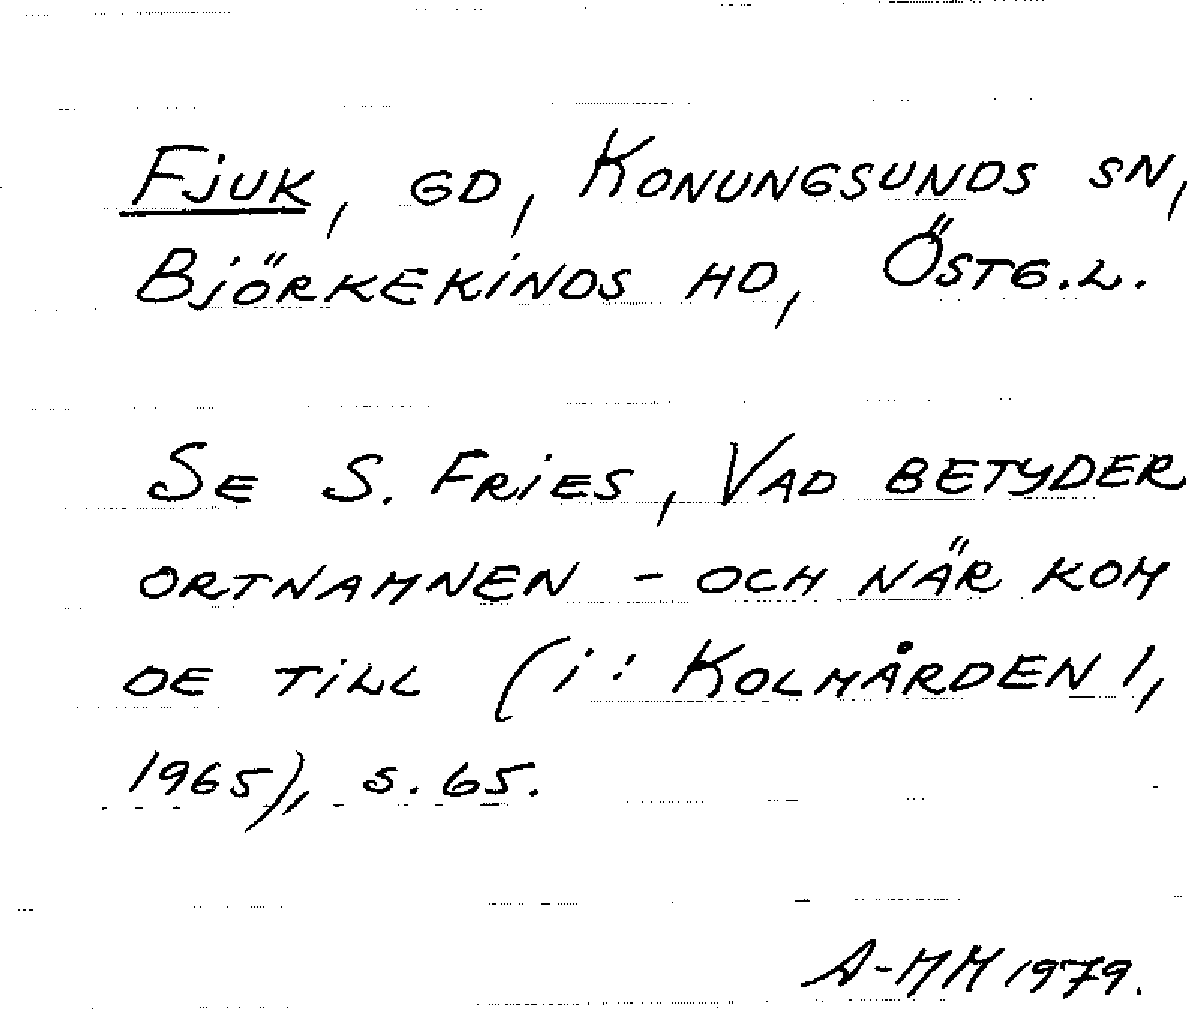 Fjuk, gd, Konungsunds sn,
Björkekinds hd, Östg.l.
Se S. Fries, Vad betyder
ortnamnen - och när kom
de till (i: Kolmården 1,
1965), s. 65.
A-MM 1979.